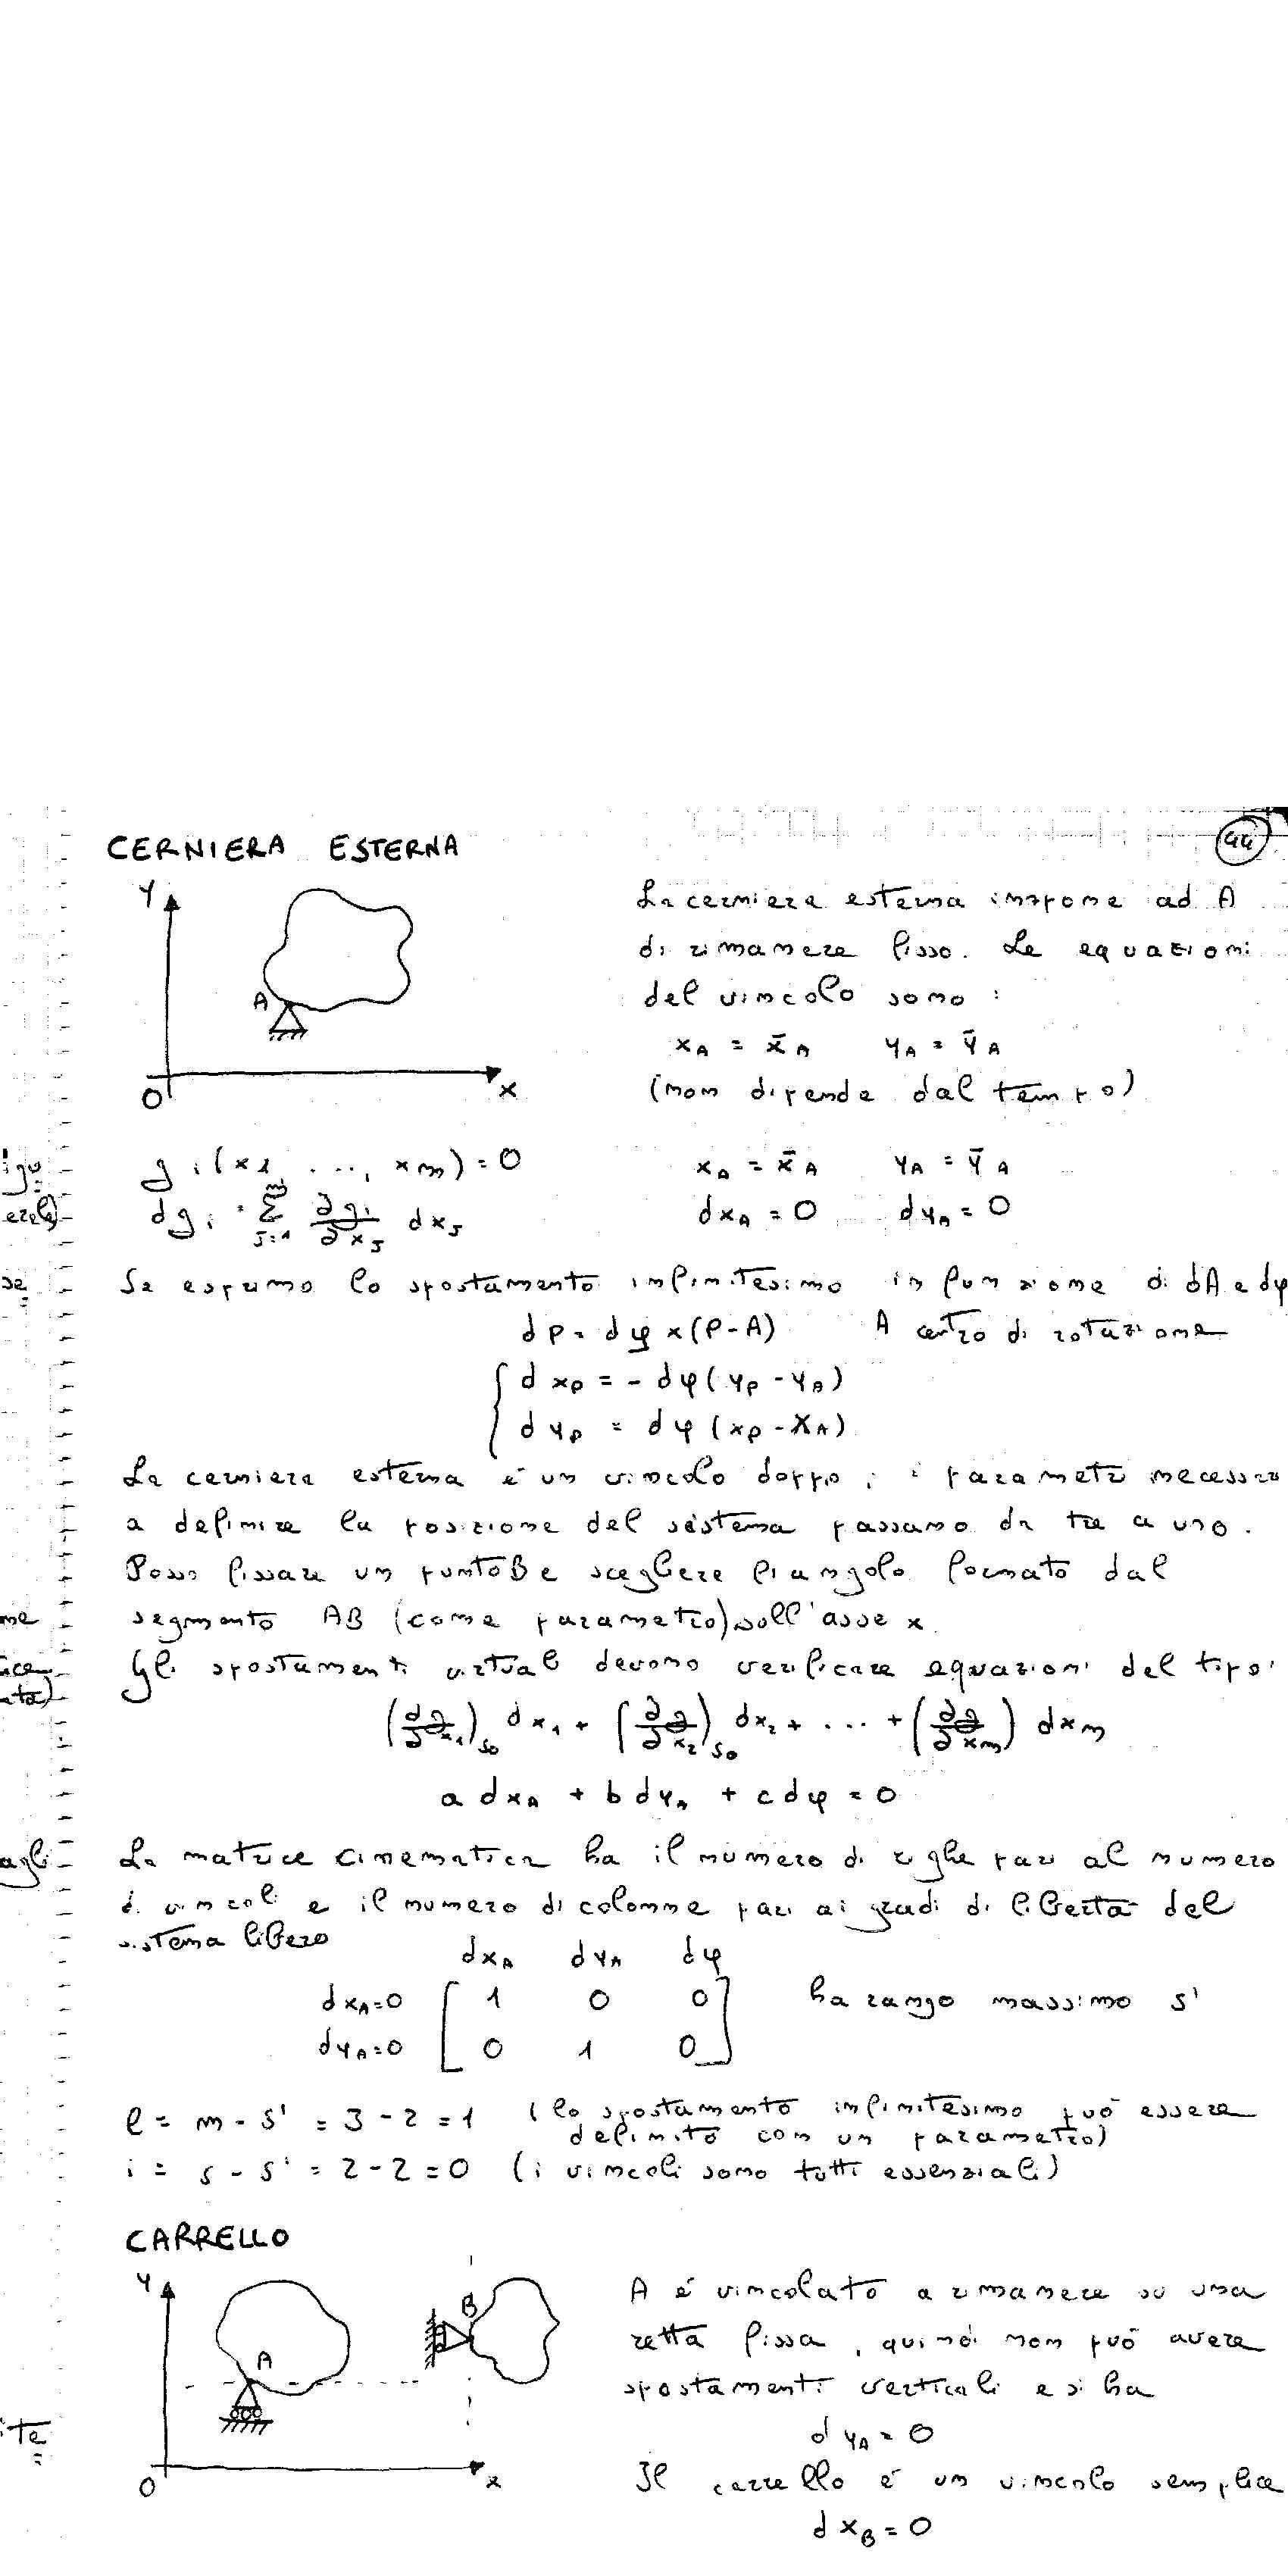 CERNIERA ESTERNA
44
Y
A
O
X
La cerniera esterna impone ad A
di rimanere fisso. Le equazioni
del vincolo sono :
x_A = x̄_A   y_A = ȳ_A
(non dipende dal tempo)
g_i (x_1, ..., x_m) = 0   x_A = x̄_A   y_A = ȳ_A
dg_i = Σ_{j=1}^{m} ∂g_i/∂x_j dx_j   dx_A = 0   dy_A = 0
Se esprimo lo spostamento infinitesimo in funzione di dA e dφ
dP = dφ x (P - A)   A centro di rotazione
{ dx_P = - dφ (y_P - y_A)
dy_P = dφ (x_P - x_A)
La cerniera esterna é un vincolo doppio ; i parametri necessari
a definire la posizione del sistema passano da tre a uno.
Posso fissare un punto B e scegliere l'angolo formato dal
segmento AB (come parametro) sull'asse x
Gli spostamenti virtuali devono verificare equazioni del tipo:
(∂g/∂x_1)_{S0} dx_1 + (∂g/∂x_2)_{S0} dx_2 + ... + (∂g/∂x_m) dx_m
a dx_A + b dy_A + c dφ = 0
La matrice cinematica ha il numero di righe pari al numero
di vincoli e il numero di colonne pari ai gradi di libertà del
sistema libero
dx_A   dy_A   dφ
dx_A = 0 [ 1 0 0 ]   ha rango massimo s'
dy_A = 0 [ 0 1 0 ]
l = m - s' = 3 - 2 = 1 (lo spostamento infinitesimo può essere
definito con un parametro)
i = s - s' = 2 - 2 = 0 (i vincoli sono tutti essenziali)
CARRELLO
Y
A
B
O
x
A é vincolato a rimanere su una
retta fissa, quindi non può avere
spostamenti verticali e si ha
dy_A = 0
Il carrello é un vincolo semplice
dx_B = 0